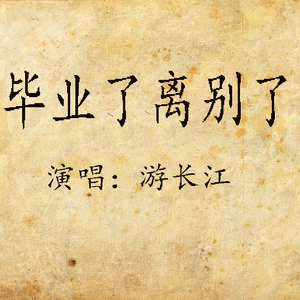 毕业了离别了
演唱：游长江